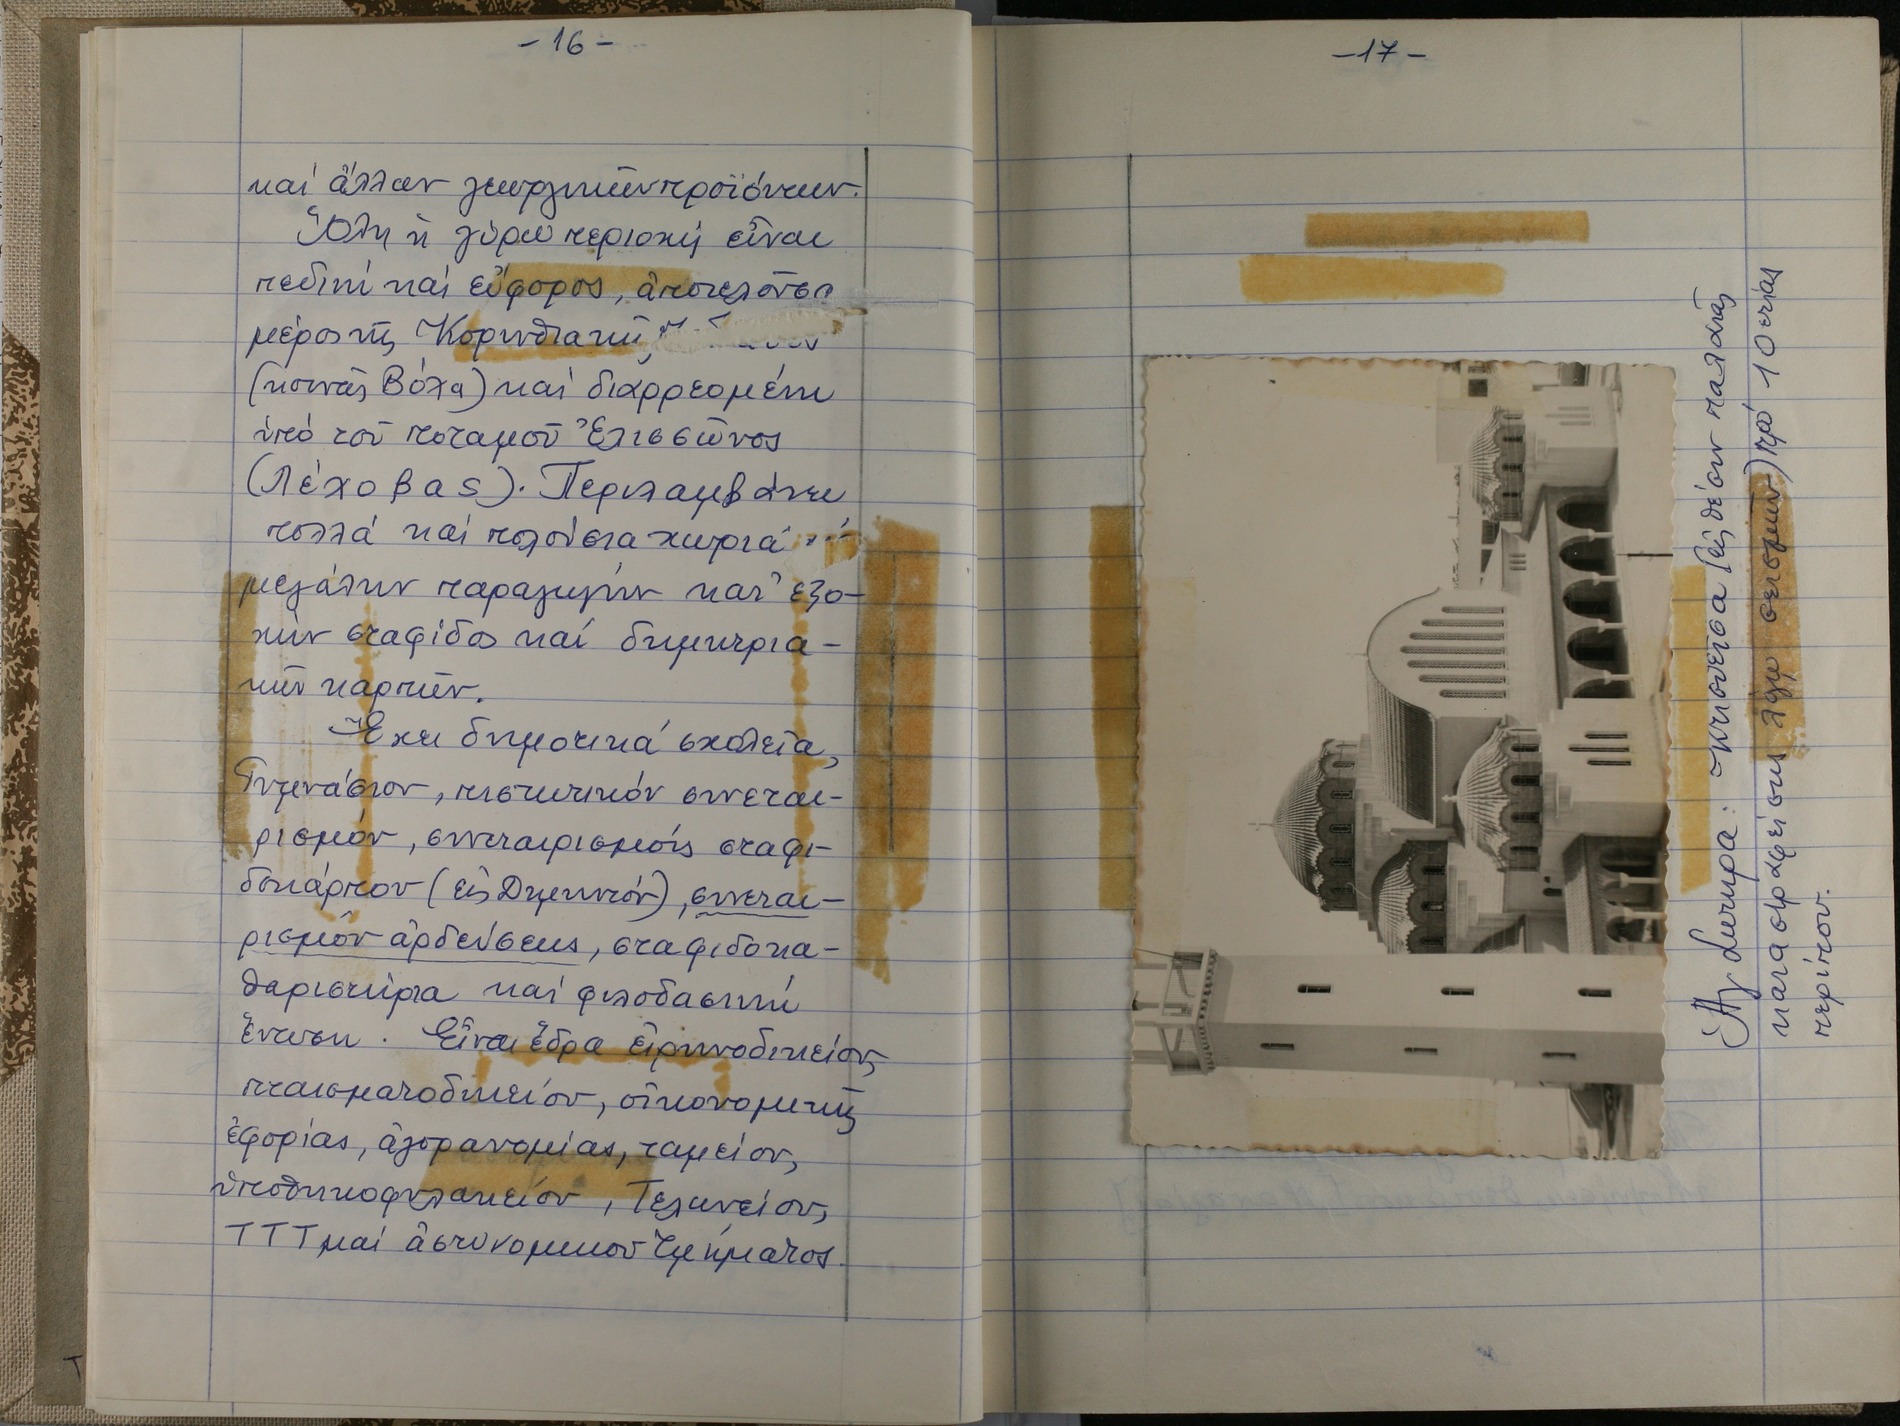 - 16 -
καί ἄλλων γεωργικῶν προϊόντων.
Ὅλη ἡ γύρω περιοχή εἶναι
πεδινή καί εὔφορος, ἀποτελοῦσα
μέρος τῆς Κορινθιακῆς
(κοινῶς Βόχα) καί διαρρεομένη
ὑπό τοῦ ποταμοῦ Ἐλισσῶνος
(Λέχοβας). Περιλαμβάνει
πολλά καί πλούσια χωριά
μεγάλων παραγωγῶν κατ' ἐξο-
χήν σταφίδος καί δημητρια-
κῶν καρπῶν.
Ἔχει δημοτικά σχολεῖα,
Γυμνάσιον, πιστωτικόν συνεται-
ρισμόν, συνεταιρισμούς σταφι-
δοκάρπου (εἰς Διμηνιόν), συνεται-
ρισμόν ἀρδεύσεως, σταφιδοκα-
θαριστήρια καί φιλοδασική
ἕνωση. Εἶναι ἕδρα εἰρηνοδικείου,
πταισματοδικείου, οἰκονομικῆς
ἐφορίας, ἀγορανομίας, ταμείου,
ὑποθηκοφυλακείου, Τελωνείου,
ΤΤΤ καί ἀστυνομικοῦ τμήματος.
- 17 -
Ἁγ Σωτηρα: κτισθεῖσα [εἰς θέσιν παλαιᾶς
καταστραφείσης λόγω σεισμῶν) πρό 10ετίας
περίπου.